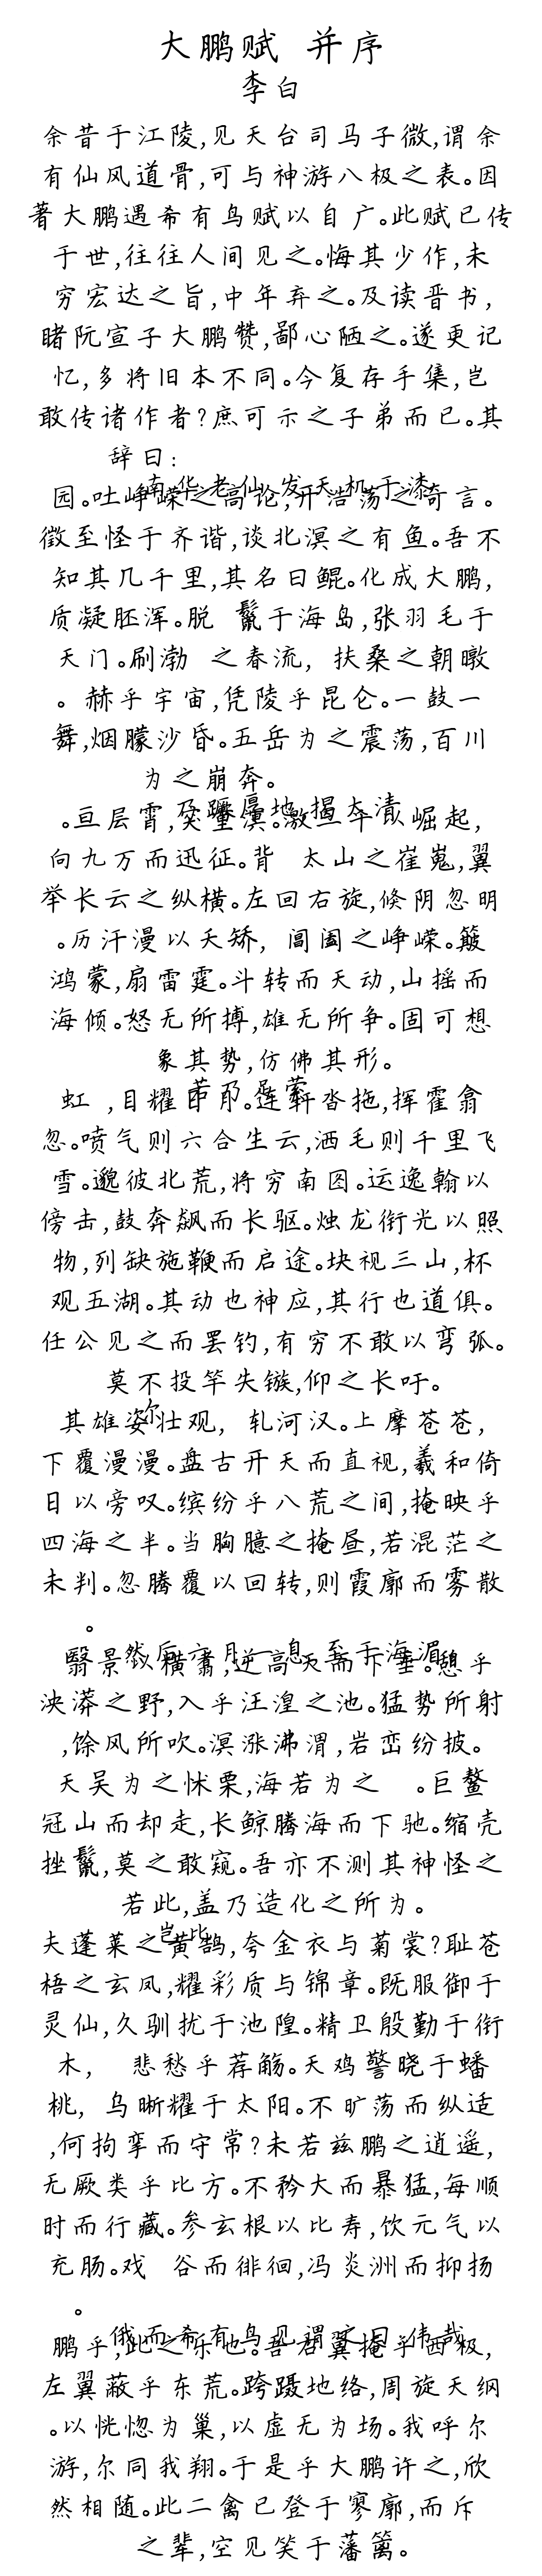 大鹏赋 并序
李白
余昔于江陵,见天台司马子微,谓余
有仙风道骨,可与神游八极之表。因
著大鹏遇希有鸟赋以自广。此赋已传
于世,往往人间见之。悔其少作,未
穷宏达之旨,中年弃之。及读晋书,
睹阮宣子大鹏赞,鄙心陋之。遂更记
忆,多将旧本不同。今复存手集,岂
敢传诸作者?庶可示之子弟而已。其
辞曰:
南华老仙,发天机于漆
园。吐峥嵘之高论,开浩荡之奇言。
徵至怪于齐谐,谈北溟之有鱼。吾不
知其几千里,其名曰鲲。化成大鹏,
质凝胚浑。脱 鬣于海岛,张羽毛于
天门。刷渤 之春流, 扶桑之朝暾
。赫乎宇宙,凭陵乎昆仑。一鼓一
舞,烟朦沙昏。五岳为之震荡,百川
为之崩奔。
乃蹶厚地,揭太清
。亘层霄,突重溟。激三千以崛起,
向九万而迅征。背 太山之崔嵬,翼
举长云之纵横。左回右旋,倏阴忽明
。历汗漫以夭矫, 阊阖之峥嵘。簸
鸿蒙,扇雷霆。斗转而天动,山摇而
海倾。怒无所搏,雄无所争。固可想
象其势,仿佛其形。
若乃足萦
虹 ,目耀日月。连轩沓拖,挥霍翕
忽。喷气则六合生云,洒毛则千里飞
雪。邈彼北荒,将穷南图。运逸翰以
傍击,鼓奔飙而长驱。烛龙衔光以照
物,列缺施鞭而启途。块视三山,杯
观五湖。其动也神应,其行也道俱。
任公见之而罢钓,有穷不敢以弯弧。
莫不投竿失镞,仰之长吁。
尔
其雄姿壮观, 轧河汉。上摩苍苍,
下覆漫漫。盘古开天而直视,羲和倚
日以旁叹。缤纷乎八荒之间,掩映乎
四海之半。当胸臆之掩昼,若混茫之
未判。忽腾覆以回转,则霞廓而雾散
。
然后六月一息,至于海湄。
翳景以横翥,逆高天而下垂。憩乎
泱漭之野,入乎汪湟之池。猛势所射
,馀风所吹。溟涨沸渭,岩峦纷披。
天吴为之怵栗,海若为之 。巨鳌
冠山而却走,长鲸腾海而下驰。缩壳
挫鬣,莫之敢窥。吾亦不测其神怪之
若此,盖乃造化之所为。
岂比
夫蓬莱之黄鹄,夸金衣与菊裳?耻苍
梧之玄凤,耀彩质与锦章。既服御于
灵仙,久驯扰于池隍。精卫殷勤于衔
木, 悲愁乎荐觞。天鸡警晓于蟠
桃, 乌晰耀于太阳。不旷荡而纵适
,何拘挛而守常?未若兹鹏之逍遥,
无厥类乎比方。不矜大而暴猛,每顺
时而行藏。参玄根以比寿,饮元气以
充肠。戏 谷而徘徊,冯炎洲而抑扬
。
俄而希有鸟见谓之曰:伟哉
鹏乎,此之乐也。吾右翼掩乎西极,
左翼蔽乎东荒。跨蹑地络,周旋天纲
。以恍惚为巢,以虚无为场。我呼尔
游,尔同我翔。于是乎大鹏许之,欣
然相随。此二禽已登于寥廓,而斥
之辈,空见笑于藩篱。